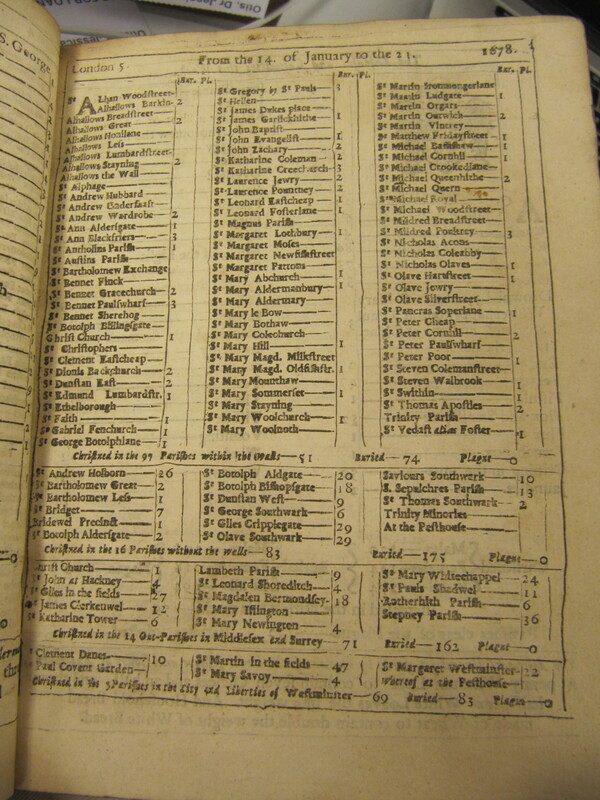 S. George
London 5
From the 14. of January to the 21.
1678.
Bur. Pl.
St Alban Woodstreet
Alhallows Barkin 2
Alhallows Breadstreet
Alhallows Great 2
Alhallows Honilane
Alhallows Less
Alhallows Lumbardstreet
Alhallows Stayning 2
Alhallows the Wall
St Alphage
St Andrew Hubbard
St Andrew Undershaft
St Andrew Wardrobe 2
St Ann Aldersgate 1
St Ann Blackfriers 3
St Antholins Parish 1
St Austins Parish
St Bartholomew Exchange
St Bennet Finck
St Bennet Gracechurch 2
St Bennet Paulswharf 3
St Bennet Sherehog
St Botolph Billingsgate
Christ Church 1
St Christophers
St Clement Eastcheap
St Dionis Backchurch 2
St Dunstan East 2
St Edmund Lumbardstr. 1
St Ethelborough
St Faith 1
St Gabriel Fenchurch 1
St George Botolphlane 1
Bur. Pl.
St Gregory by St Pauls 3
St Hellen
St James Dukes place
St James Garlickhithe 1
St John Baptist
St John Evangelist 1
St John Zachary 2
St Katharine Coleman 2
St Katharine Creechurch 3
St Laurence Jewry
St Laurence Pountney 2
St Leonard Eastcheap 1
St Leonard Fosterlane 1
St Magnus Parish
St Margaret Lothbury 1
St Margaret Moses
St Margaret Newfishstreet
St Margaret Pattons
St Mary Abchurch 1
St Mary Aldermanbury 1
St Mary Aldermary
St Mary le Bow
St Mary Bothaw
St Mary Colechurch
St Mary Hill 1
St Mary Magd. Milkstreet
St Mary Magd. Oldfishstr. 1
St Mary Mounthaw
St Mary Sommerset 1
St Mary Stayning
St Mary Woolchurch 1
St Mary Woolnoth
Bur. Pl.
St Martin Ironmongerlane
St Martin Ludgate 1
St Martin Orgars
St Martin Outwich 2
St Martin Vintrey
St Matthew Fridaystreet 1
St Michael Bassishaw 1
St Michael Cornhil 1
St Michael Crookedlane
St Michael Queenhithe 2
St Michael Quern
St Michael Royal
St Michael Woodstreet
St Mildred Breadstreet
St Mildred Poultrey 3
St Nicholas Acons
St Nicholas Coleabby
St Nicholas Olaves 1
St Olave Hartstreet 1
St Olave Jewry
St Olave Silverstreet
St Pancras Soperlane 1
St Peter Cheap
St Peter Cornhil 2
St Peter Paulswharf
St Peter Poor 1
St Steven Colemanstreet
St Steven Walbrook 1
St Swithin 1
St Thomas Apostles 2
Trinity Parish
St Vedast alias Foster 1
Christned in the 97 Parishes within the Walls 51 Buried 74 Plague 0
St Andrew Holborn 26
St Bartholomew Great 2
St Bartholomew Less 1
St Bridget 7
Bridewel Precinct 1
St Botolph Aldersgate 2
St Botolph Aldgate 20
St Botolph Bishopsgate 18
St Dunstan West 9
St George Southwark 6
St Giles Cripplegate 29
St Olave Southwark 29
Saviours Southwark 10
S. Sepulchres Parish 13
St Thomas Southwark 2
Trinity Minories
At the Pesthouse
Christned in the 16 Parishes without the Walls 83 Buried 175 Plague 0
Christ Church 1
St John at Hackney 4
St Giles in the fields 27
St James Clerkenwel 12
St Katharine Tower 6
Lambeth Parish 9
St Leonard Shoreditch 4
St Magdalen Bermondsey 18
St Mary Islington
St Mary Newington 4
St Mary Whitechappel 24
St Pauls Shadwel 11
Rotherhith Parish 6
Stepney Parish 36
Christned in the 14 Out-Parishes in Middlesex and Surrey 71 Buried 162 Plague 0
St Clement Danes 10
St Paul Covent Garden
St Martin in the fields 47
St Mary Savoy 4
St Margaret Westminster 22
Whereof at the Pesthouse
Christned in the 5 Parishes in the City and Liberties of Westminster 69 Buried 83 Plague 0